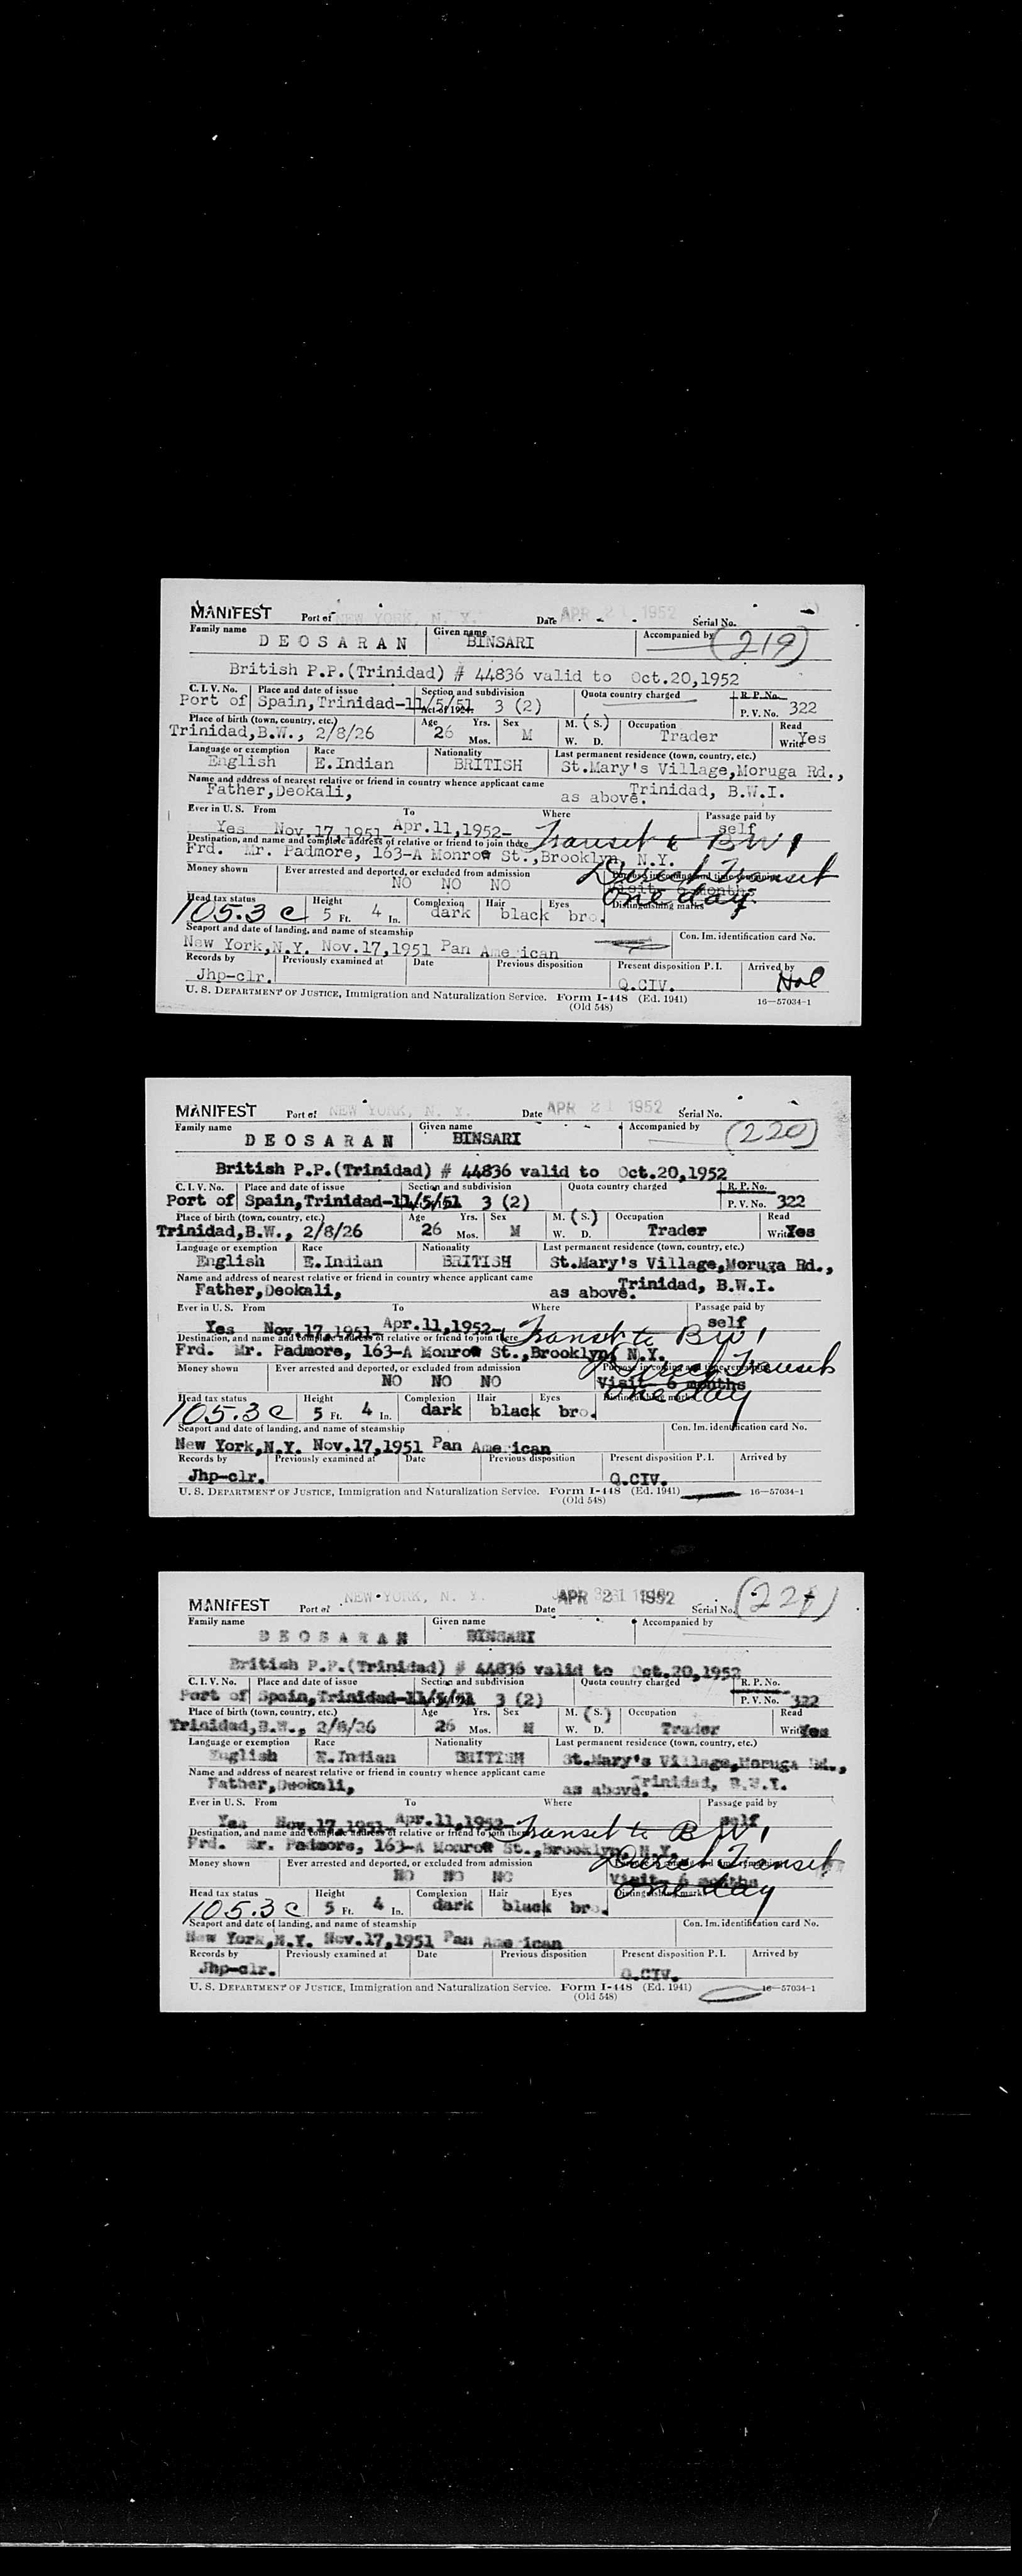 MANIFEST Port of NEW YORK, N. Y. Date APR 21 1952 Serial No.
Family name Given name Accompanied by (219)
DEOSARAN BINSARI
British P.P.(Trinidad) # 44836 valid to Oct.20,1952
C. I. V. No. Place and date of issue Section and subdivision Quota country charged R. P. No.
Port of Spain,Trinidad-11/5/51 3 (2) P. V. No. 322
Act of 1924.
Place of birth (town, country, etc.) Age Yrs. Sex M. (S.) Occupation Read
Trinidad,B.W., 2/8/26 26 Mos. M W. D. Trader Write Yes
Language or exemption Race Nationality Last permanent residence (town, country, etc.)
English E.Indian BRITISH St.Mary's Village,Moruga Rd.,
Name and address of nearest relative or friend in country whence applicant came
Father,Deokali, as above. Trinidad, B.W.I.
Ever in U. S. From To Where Passage paid by
Yes Nov.17,1951 Apr.11,1952- self
Transit to BWI
Destination, and name and complete address of relative or friend to join there
Frd. Mr. Padmore, 163-A Monroe St.,Brooklyn, N.Y.
Direct Transit
Money shown Ever arrested and deported, or excluded from admission Purpose in coming and time remaining
NO NO NO Visit 6 months
One day
Head tax status Height Complexion Hair Eyes Distinguishing marks
105.3 c 5 Ft. 4 In. dark black bro.
Seaport and date of landing, and name of steamship Con. Im. identification card No.
New York,N.Y. Nov.17,1951 Pan American
Records by Previously examined at Date Previous disposition Present disposition P. I. Arrived by
Jhp-clr. Q.CIV.
U. S. DEPARTMENT OF JUSTICE, Immigration and Naturalization Service. Form I-448 (Ed. 1941) 16—57034-1
(Old 548)
MANIFEST Port of NEW YORK, N. Y. Date APR 21 1952 Serial No.
Family name Given name Accompanied by (220)
DEOSARAN BINSARI
British P.P.(Trinidad) # 44836 valid to Oct.20,1952
C. I. V. No. Place and date of issue Section and subdivision Quota country charged R. P. No.
Port of Spain,Trinidad-11/5/51 3 (2) P. V. No. 322
Place of birth (town, country, etc.) Age Yrs. Sex M. (S.) Occupation Read
Trinidad,B.W., 2/8/26 26 Mos. M W. D. Trader Write Yes
Language or exemption Race Nationality Last permanent residence (town, country, etc.)
English E.Indian BRITISH St.Mary's Village,Moruga Rd.,
Name and address of nearest relative or friend in country whence applicant came
Father,Deokali, as above. Trinidad, B.W.I.
Ever in U. S. From To Where Passage paid by
Yes Nov.17,1951 Apr.11,1952- self
Transit to BWI
Destination, and name and complete address of relative or friend to join there
Frd. Mr. Padmore, 163-A Monroe St.,Brooklyn, N.Y.
Direct Transit
Money shown Ever arrested and deported, or excluded from admission Purpose in coming and time remaining
NO NO NO Visit 6 months
one day
Head tax status Height Complexion Hair Eyes Distinguishing marks
105.3 c 5 Ft. 4 In. dark black bro.
Seaport and date of landing, and name of steamship Con. Im. identification card No.
New York,N.Y. Nov.17,1951 Pan American
Records by Previously examined at Date Previous disposition Present disposition P. I. Arrived by
Jhp-clr. Q.CIV.
U. S. DEPARTMENT OF JUSTICE, Immigration and Naturalization Service. Form I-448 (Ed. 1941) 16—57034-1
(Old 548)
MANIFEST Port of NEW YORK, N. Y. Date APR 21 1952 Serial No. (221)
Family name Given name Accompanied by
DEOSARAN BINSARI
British P.P.(Trinidad) # 44836 valid to Oct.20,1952
C. I. V. No. Place and date of issue Section and subdivision Quota country charged R. P. No.
Port of Spain,Trinidad-11/5/51 3 (2) P. V. No. 322
Place of birth (town, country, etc.) Age Yrs. Sex M. (S.) Occupation Read
Trinidad,B.W., 2/8/26 26 Mos. M W. D. Trader Write Yes
Language or exemption Race Nationality Last permanent residence (town, country, etc.)
English E.Indian BRITISH St.Mary's Village,Moruga Rd.,
Name and address of nearest relative or friend in country whence applicant came
Father,Deokali, as above. Trinidad, B.W.I.
Ever in U. S. From To Where Passage paid by
Yes Nov.17,1951 Apr.11,1952- self
Transit to BWI
Destination, and name and complete address of relative or friend to join there
Frd. Mr. Padmore, 163-A Monroe St.,Brooklyn, N.Y.
Direct Transit
Money shown Ever arrested and deported, or excluded from admission
NO NO NO Visit 6 months
One day
Head tax status Height Complexion Hair Eyes Distinguishing marks
105.3 c 5 Ft. 4 In. dark black bro.
Seaport and date of landing, and name of steamship Con. Im. identification card No.
New York,N.Y. Nov.17,1951 Pan American
Records by Previously examined at Date Previous disposition Present disposition P. I. Arrived by
Jhp-clr. Q.CIV.
U. S. DEPARTMENT OF JUSTICE, Immigration and Naturalization Service. Form I-448 (Ed. 1941) 16—57034-1
(Old 548)